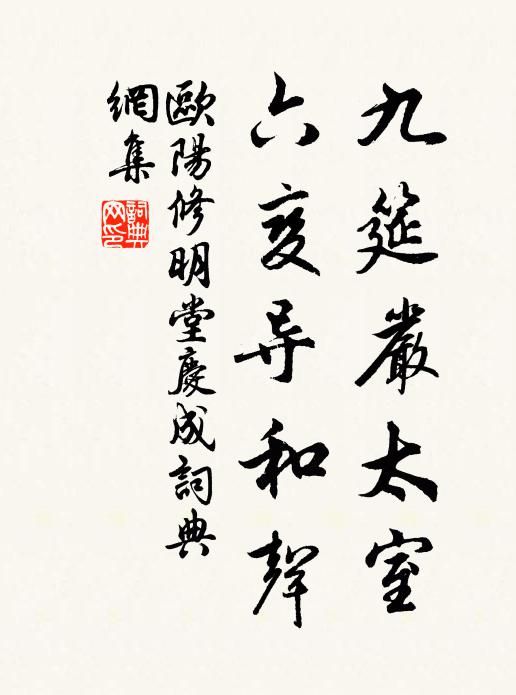 九筵嚴太室
六变导和聲
歐陽修明堂慶成詞典
網集
詞典网印